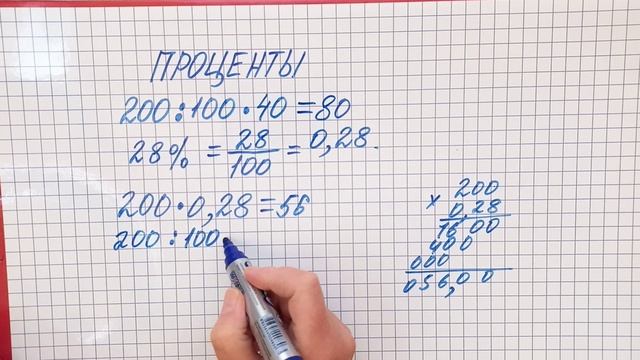 ПРОЦЕНТЫ
200:100·40=80
28% = 28/100 = 0,28.
200·0,28=56
200:100·
× 200
0,28
1600
400
000
056,00